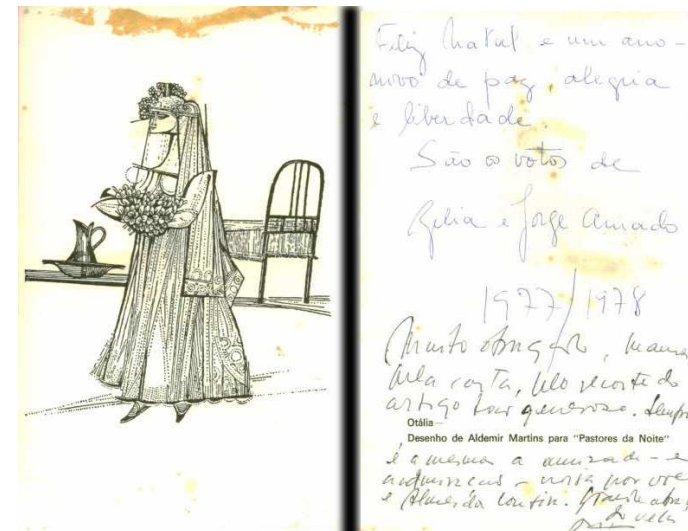 Feliz Natal e um ano-
novo de paz, alegria
e liberdade.
São os votos de
Zelia e Jorge Amado
1977/1978
Muito obrigado,
pela carta, pelo recorte do
artigo tão generoso. Sempre
Otália
Desenho de Aldemir Martins para "Pastores da Noite"
é a mesma a amizade - e
admiração - nossa por você
e Almeida